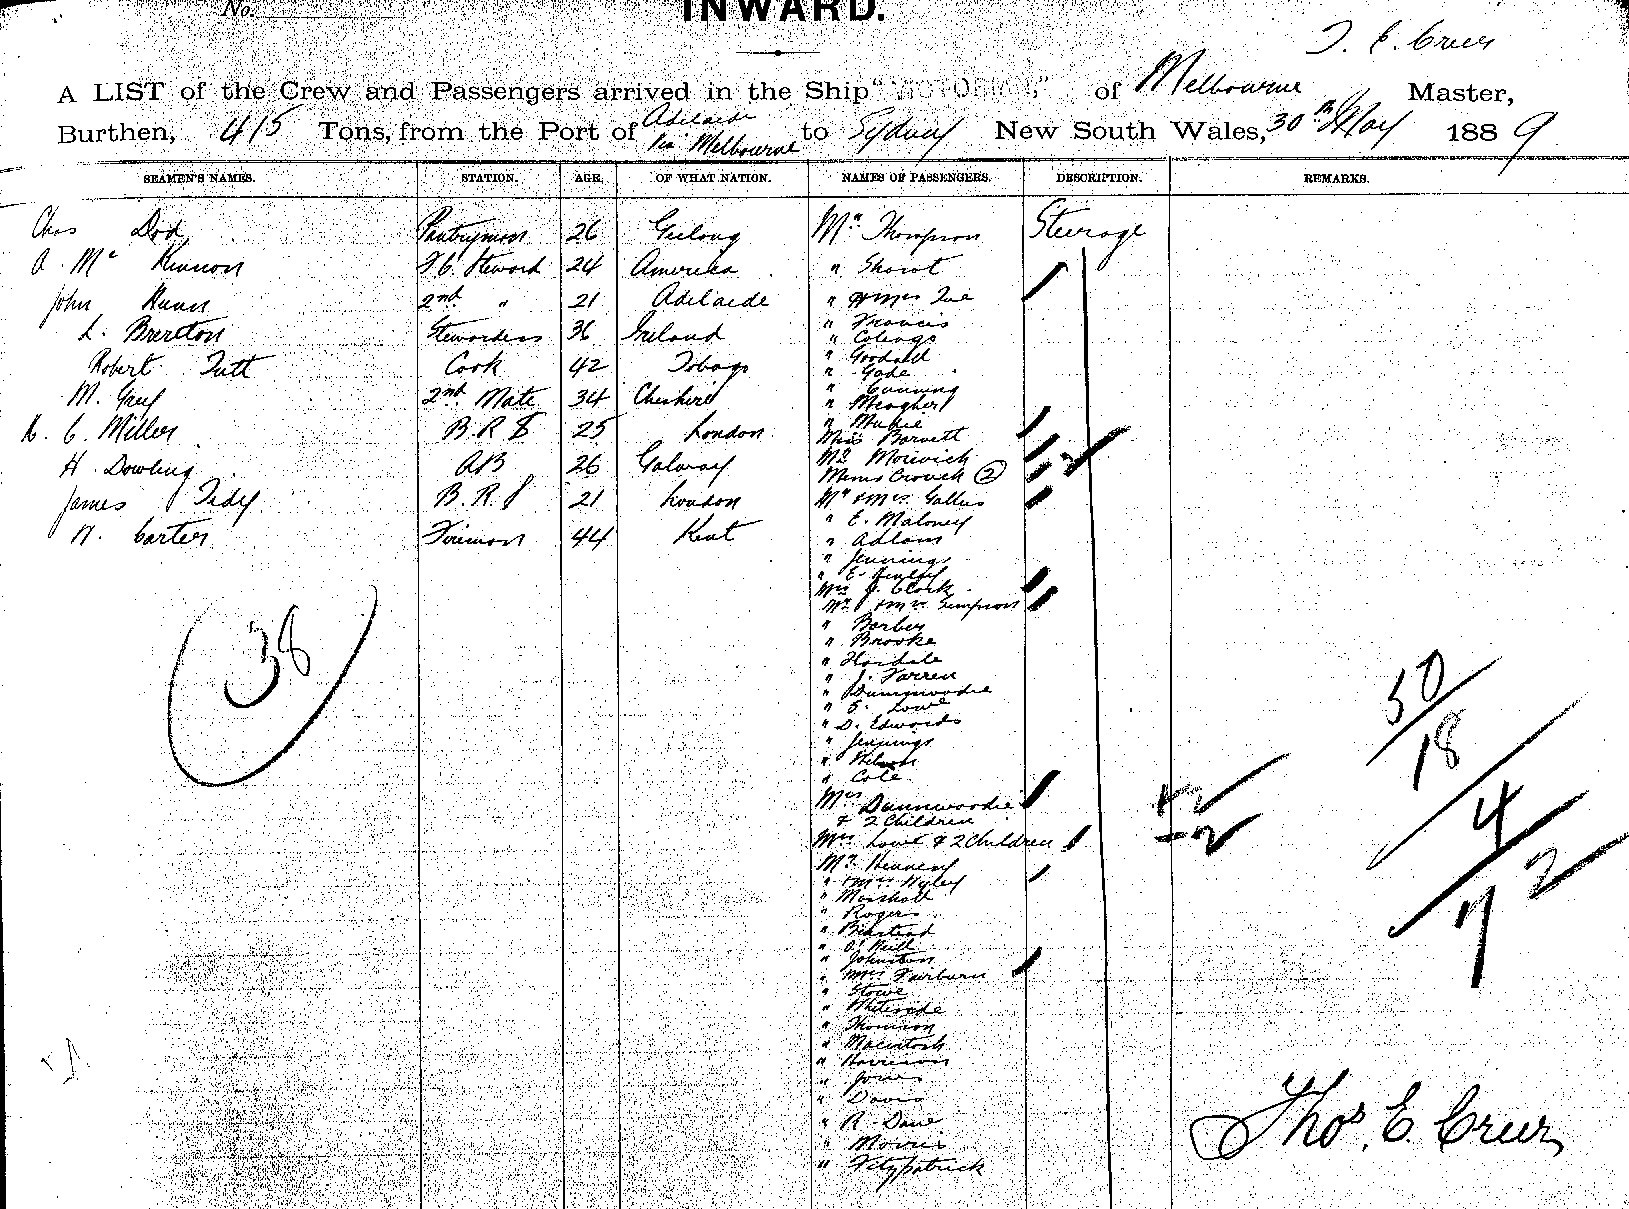 No.
INWARD.
T. E. Creer
A LIST of the Crew and Passengers arrived in the Ship " " of Melbourne Master,
Burthen, 415 Tons, from the Port of Adelaide via Melbourne to Sydney New South Wales, 30th May 1889
SEAMEN'S NAMES. STATION. AGE. OF WHAT NATION. NAMES OF PASSENGERS. DESCRIPTION. REMARKS.
Chas Dod Pantryman 26 Geelong Mr Thompson Steerage
A. Mc Kinnon F.C. Steward 24 America " Short
John 2nd " 21 Adelaide " & Mrs
L. Brereton Stewardess 36 Ireland " Francis
" 
Robert Tutt Cook 42 Tobago " Goddard
" 
M. Grey 2nd Mate 34 Cheshire " Canning
" Meagher
C. Miller B.R.S 25 London " 
Miss Barnett
H. Dowling AB 26 Galway Mr Morwick
② 
James Tidy B.R.S 21 London Mr & Mrs Gallus
" E. Maloney
N. Carter Fireman 44 Kent " Adlam
" Jennings
" E. 
Mrs J. Clark
Mr & Mrs Simpson
38
" Barber
" Brooke
" 
" J. Farren
" Dunnwoodie
" Lowe
" D. Edwards
" Jennings
" Wilson
" Cole
Mrs Dunnwoodie
& 2 Children
Mrs Lowe & 2 Children
Mr Hennesy
" & Mrs Hyley
" Marshall
" Rogers
" Binstead
" O'Neill
" Johnston
" Mrs Fairburn
" Stowe
" Whiteside
" Thomson
" Macintosh
" Harrison
" Jones
" Davis
" R. Dane
" 
" Fitzpatrick
50
18
4
72
Thos. E. Creer